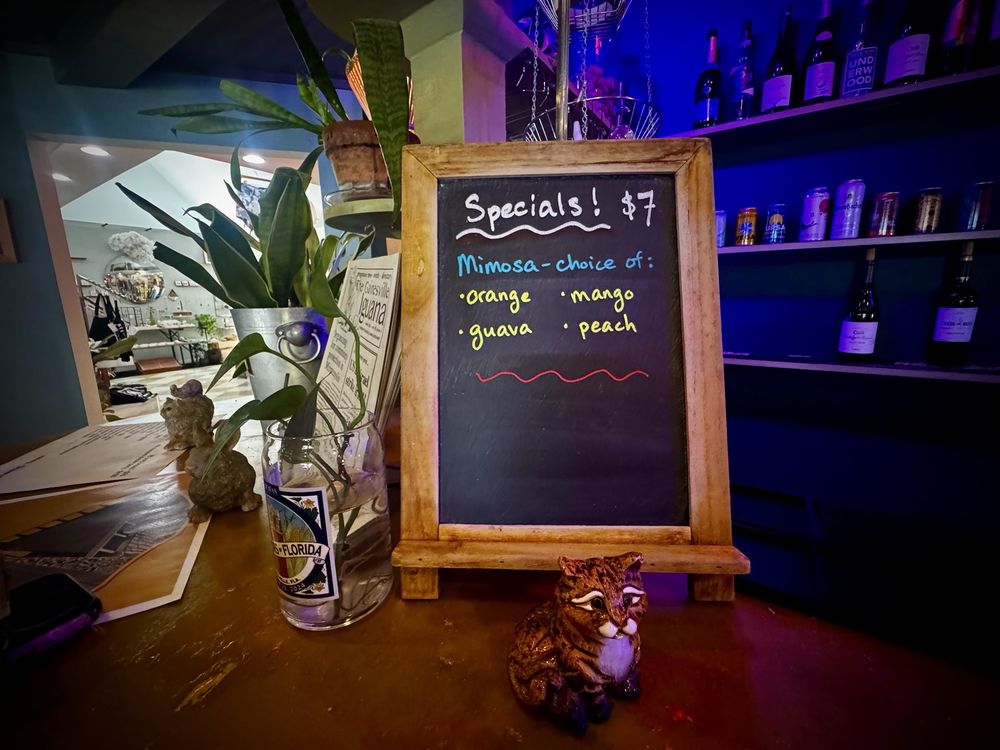 Specials! $7
Mimosa - choice of:
• orange • mango
• guava • peach
The Gainesville
Iguana
UND
ERW
OOD
FLORIDA
2024